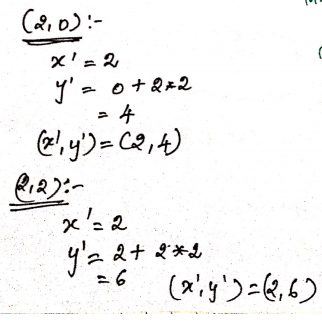 (2,0):-
x' = 2
y' = 0 + 2*2
= 4
(x', y') = (2,4)
(2,2):-
x' = 2
y' = 2 + 2*2
= 6 (x', y') = (2,6)